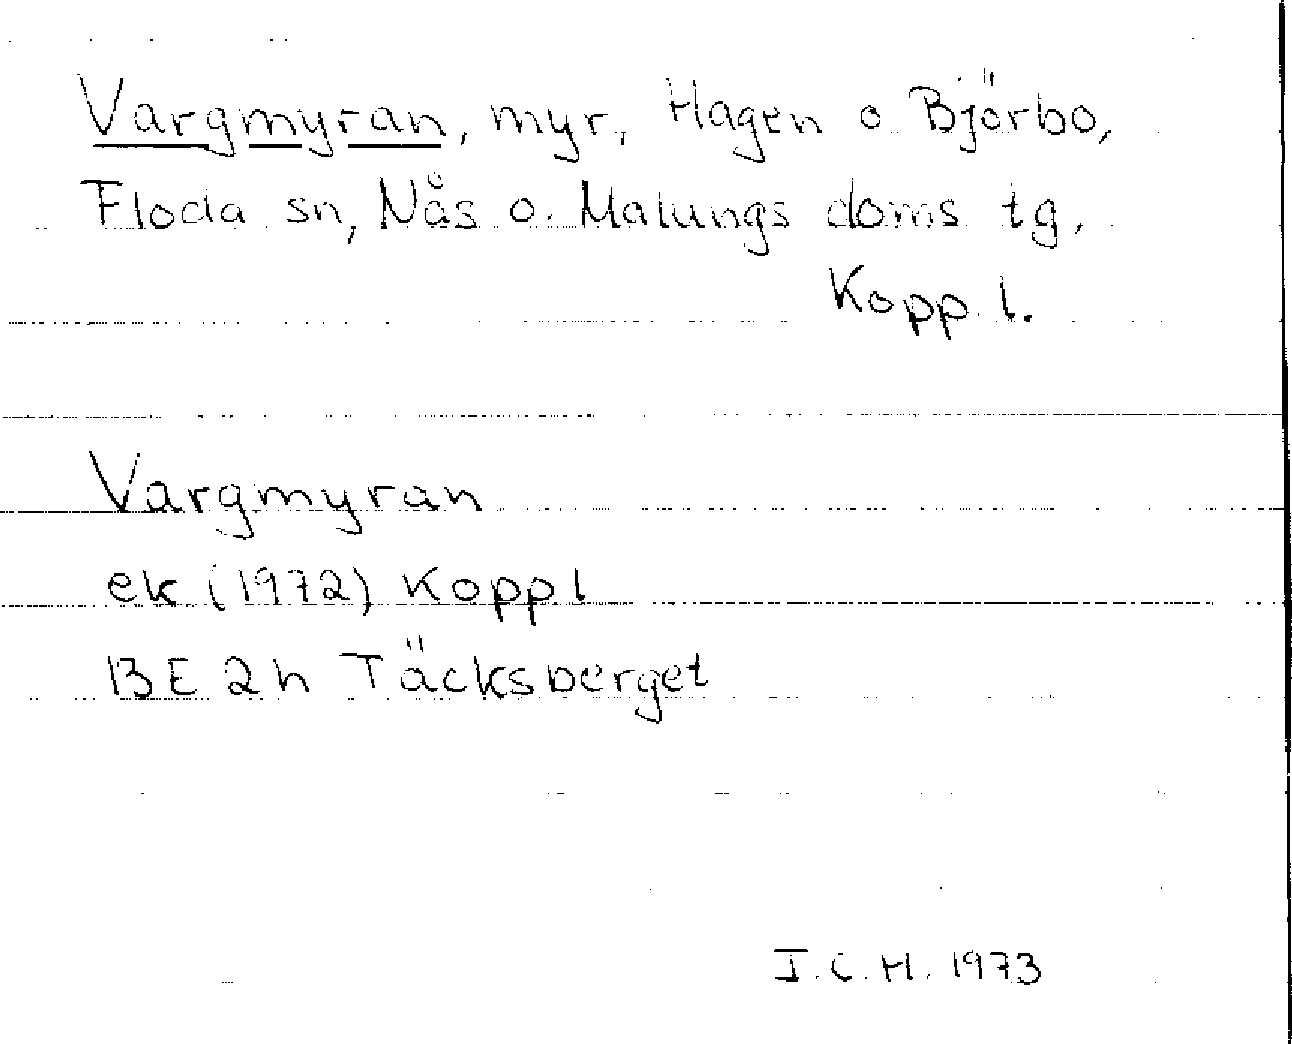 Vargmyran, myr, Hagen o Björbo,
Floda sn, Nås o. Malungs doms tg,
Kopp l.
Vargmyran
ek (1972) Kopp l
BE 2h Täcksberget
I.C.H. 1973